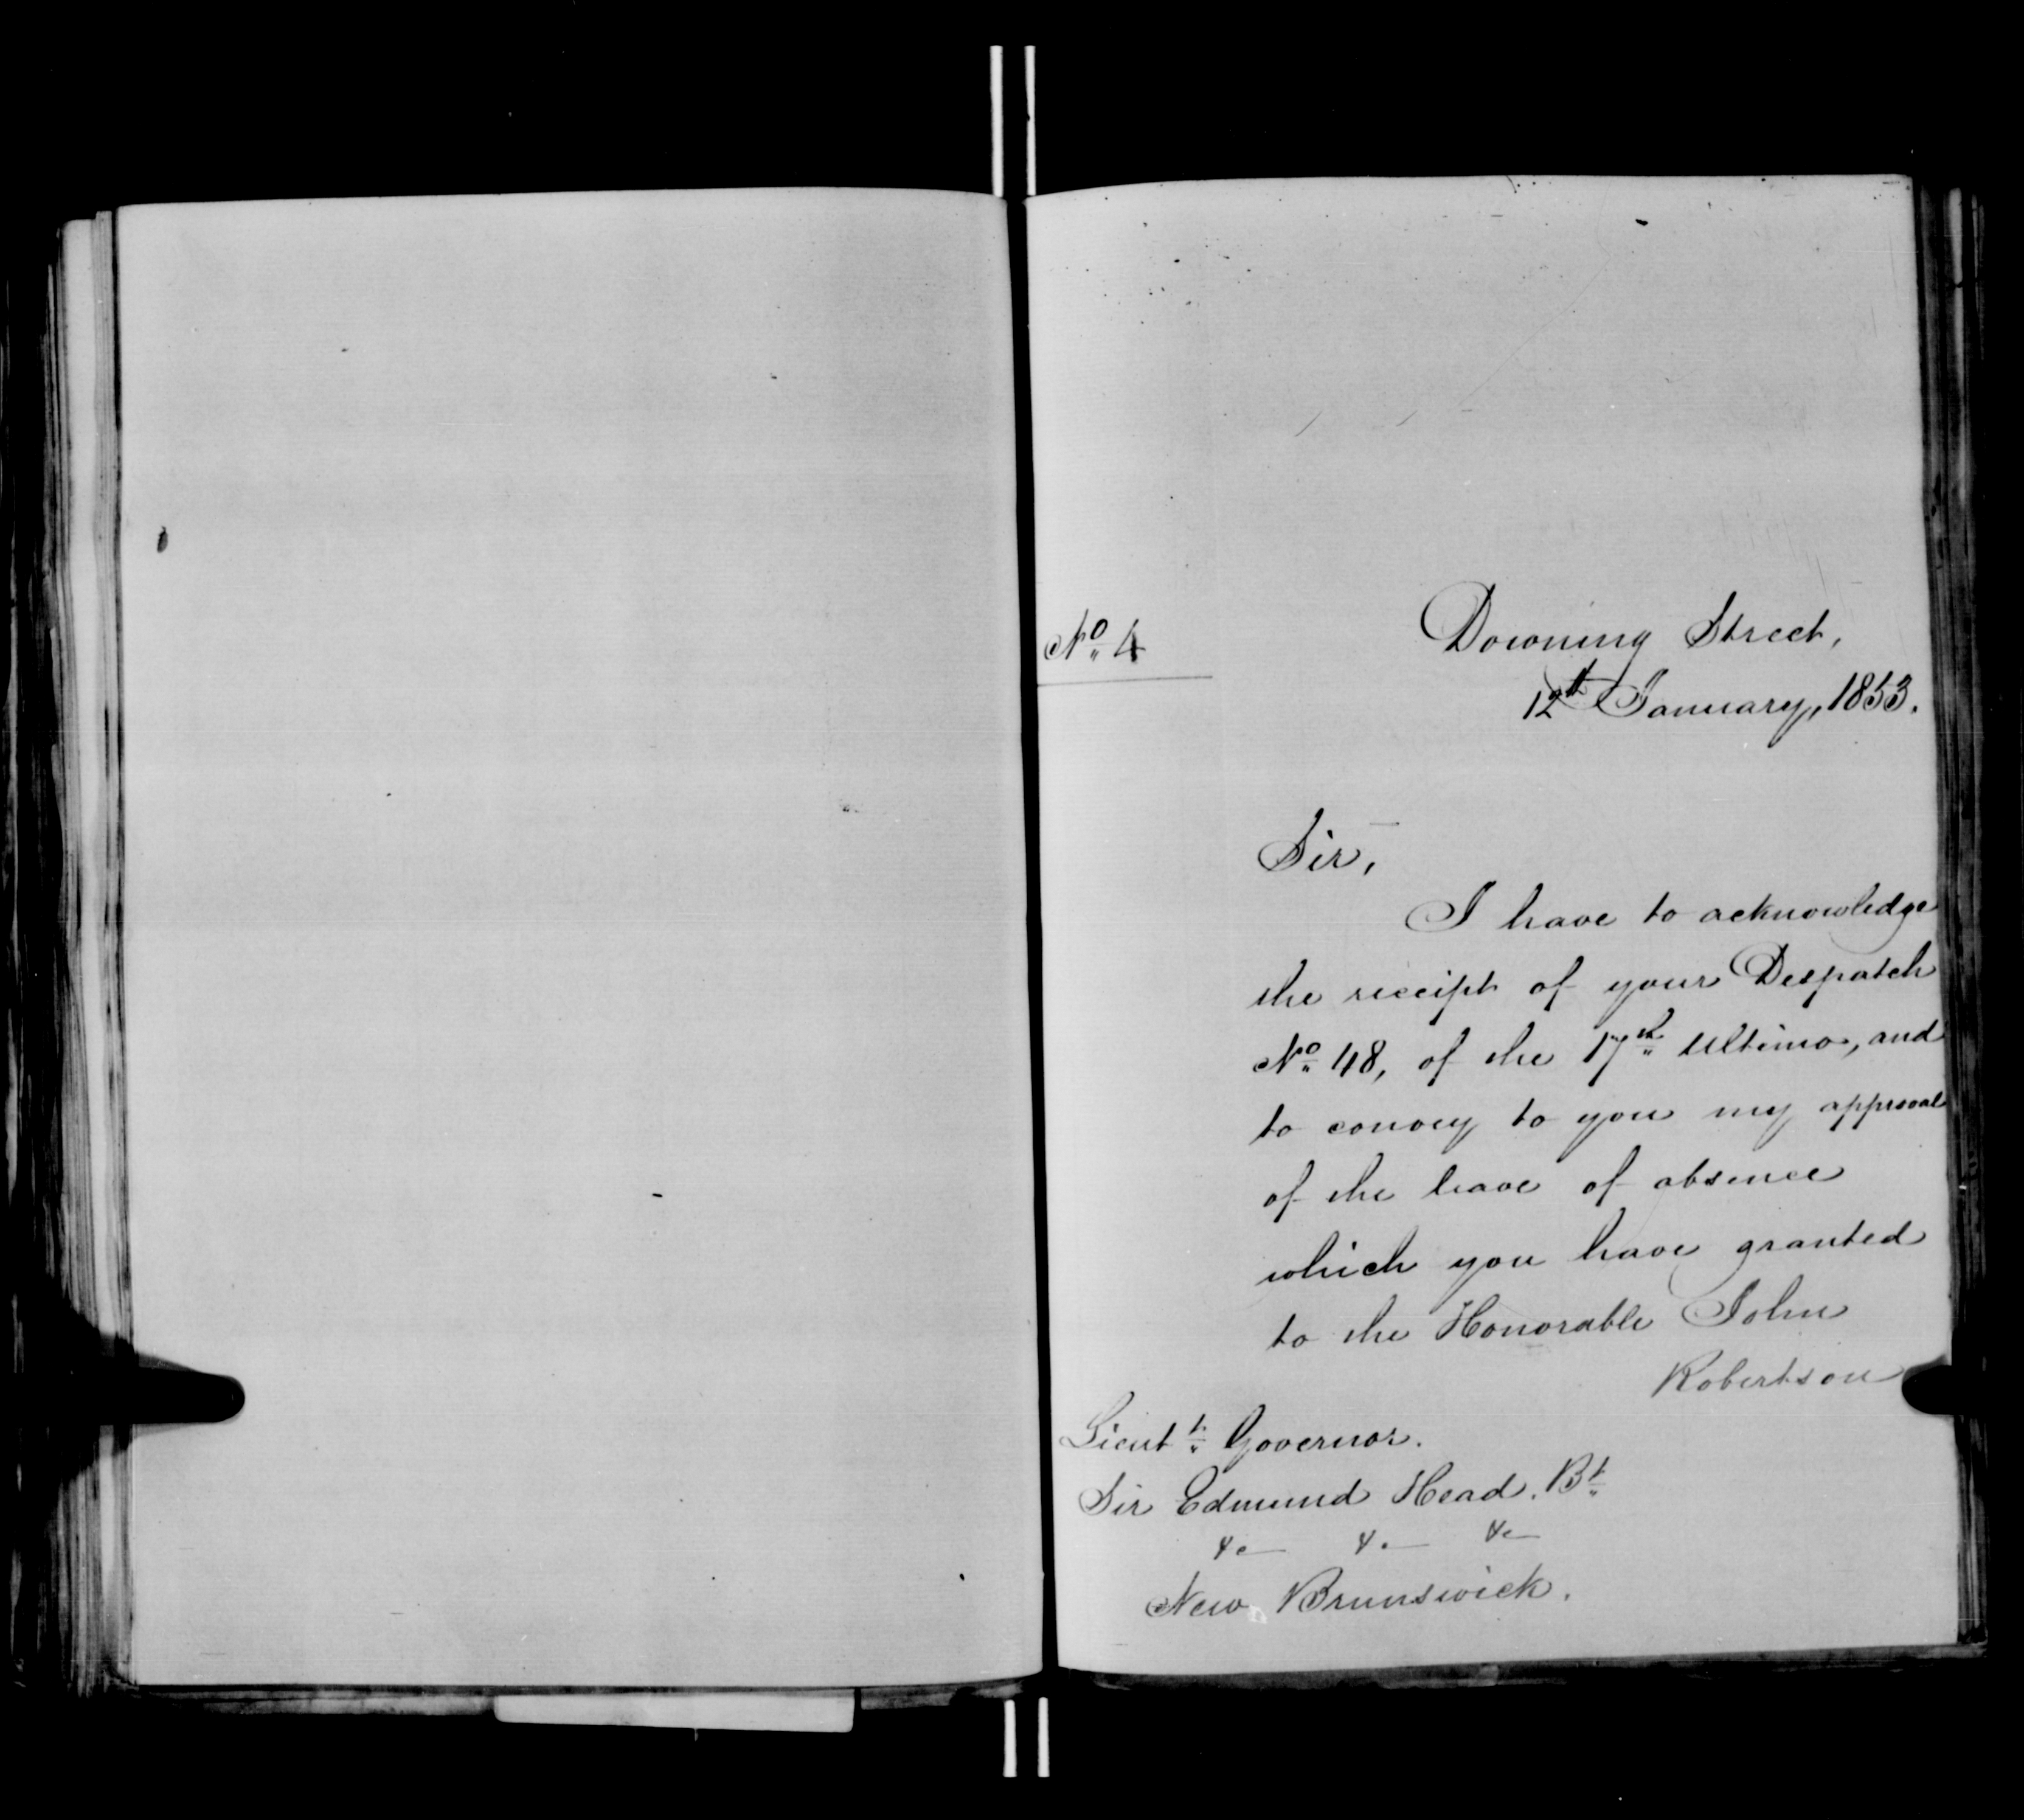 No 4
Downing Street,
12th January, 1853.
Sir,
I have to acknowledge
the receipt of your Despatch
No 48, of the 17th Ultimo, and
to convey to you my approval
of the leave of absence
which you have granted
to the Honorable John
Robertson
Lieutt Governor.
Sir Edmund Head. Bt
&c &c &c
New Brunswick.